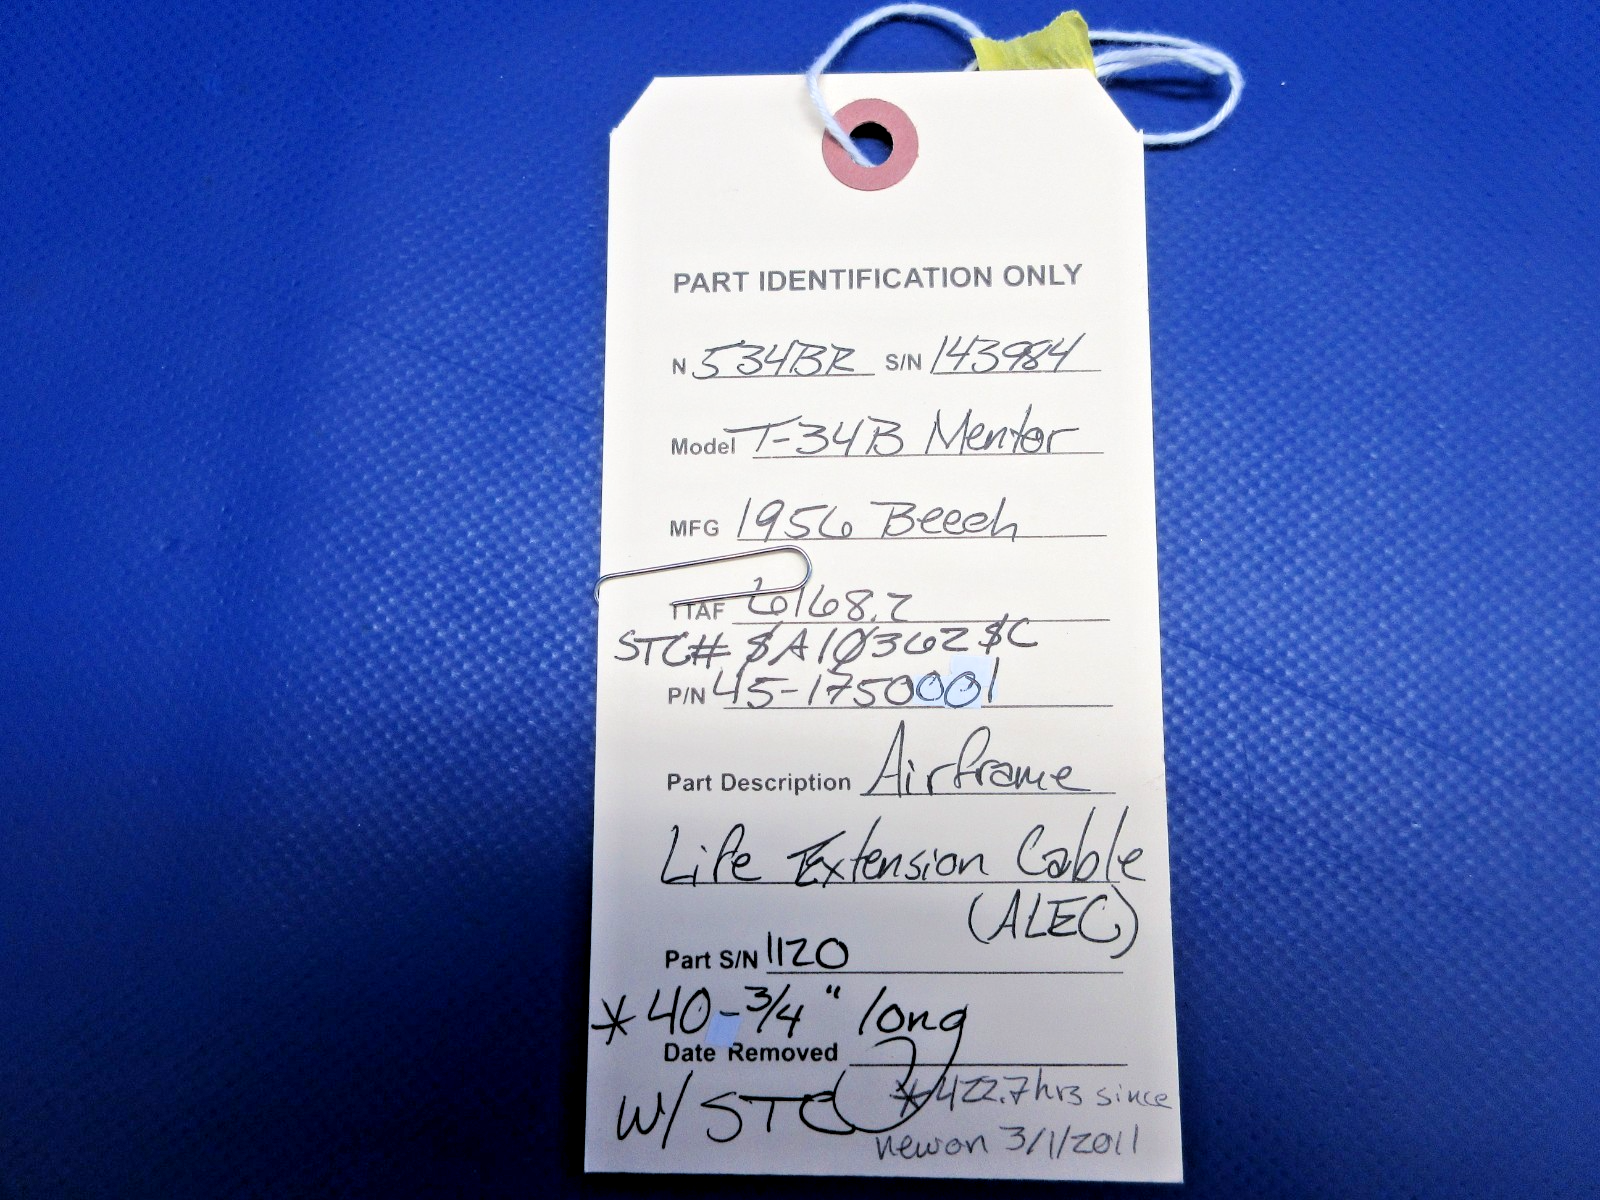 PART IDENTIFICATION ONLY
N 534BR S/N 143984
Model T-34B Mentor
MFG 1956 Beech
TTAF 6168.2
STC# SA10362SC
P/N 45-1750001
Part Description Airframe
Life Extension Cable
(ALEC)
Part S/N 1120
* 40-3/4" long
Date Removed
W/ STC
*422.7hrs since
new on 3/1/2011